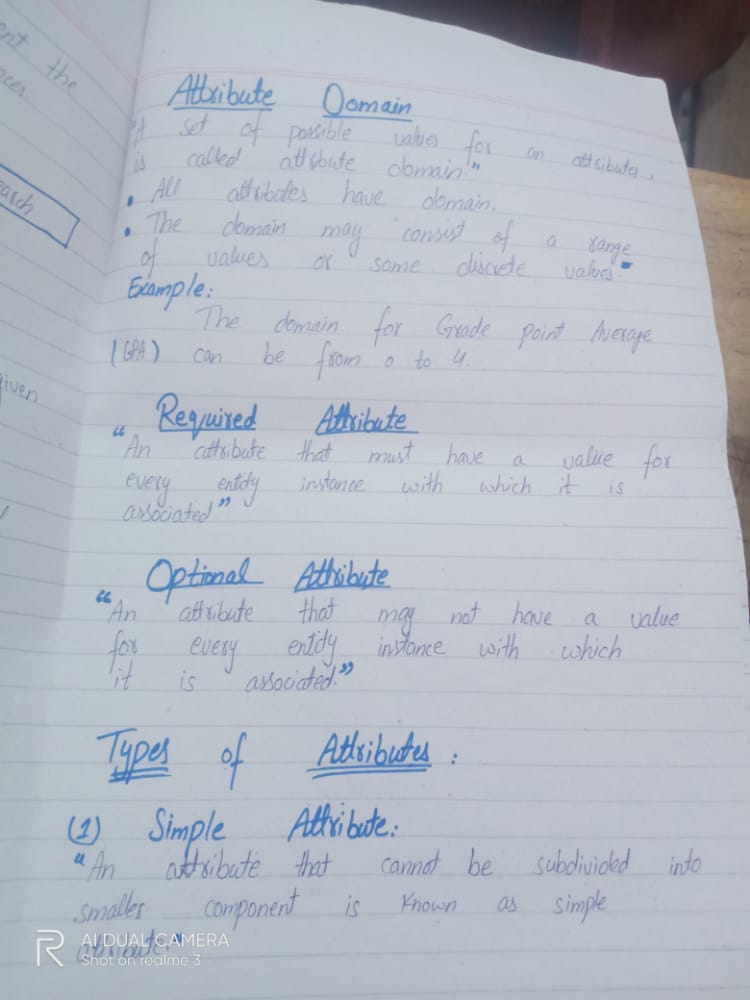 ent the
nces.
earch
given
Attribute Domain
"A set of possible values for an attributes,
is called attribute domain."
• All attributes have domain.
• The domain may consist of a range
of values or some discrete values."
Example:
The domain for Grade point Average
(GPA) can be from 0 to 4.
Required Attribute
"An attribute that must have a value for
every entity instance with which it is
associated"
Optional Attribute
"An attribute that may not have a value
for every entity instance with which
it is associated."
Types of Attributes:
(1) Simple Attribute:
"An attribute that cannot be subdivided into
smaller component is known as simple
attribute."
AI DUAL CAMERA
Shot on realme 3